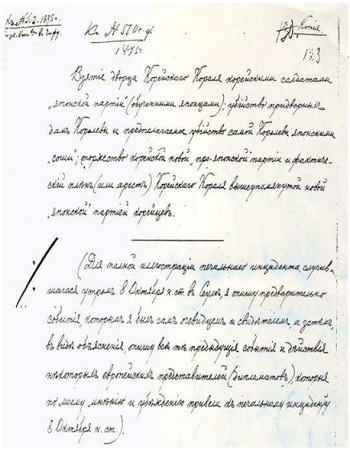 Къ № 510 с. г.
1895
Копія
Взятіе дворца Корейскаго Короля корейскими солдатами
„японской партіи (обученными японцами); убійство придворныхъ
дамъ Королевы и предполагаемое убійство самой Королевы японскими
„соши"; торжество корейской новой, про-японской партіи и фактиче-
скій плѣнъ (или арестъ) Корейскаго Короля вышеупомянутой новой
„японской" партіей корейцевъ.
(Для полной иллюстраціи печальнаго инцидента, случив-
шагося утромъ 8 Октября н. ст. въ Сеулѣ, я опишу предварительно
событія которыхъ я былъ самъ очевидцемъ и свидѣтелемъ, а затѣмъ,
въ видѣ объясненія, опишу всѣ тѣ предыдущія событія и дѣйствія
нѣкоторыхъ европейскихъ представителей (дипломатовъ), которыя
по моему мнѣнію и убѣжденію привели къ печальному инциденту
8 Октября н. ст.).